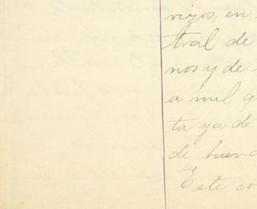 viejos, en
tral de
nos y de
a mil q
ta ya de
de buena
Este co